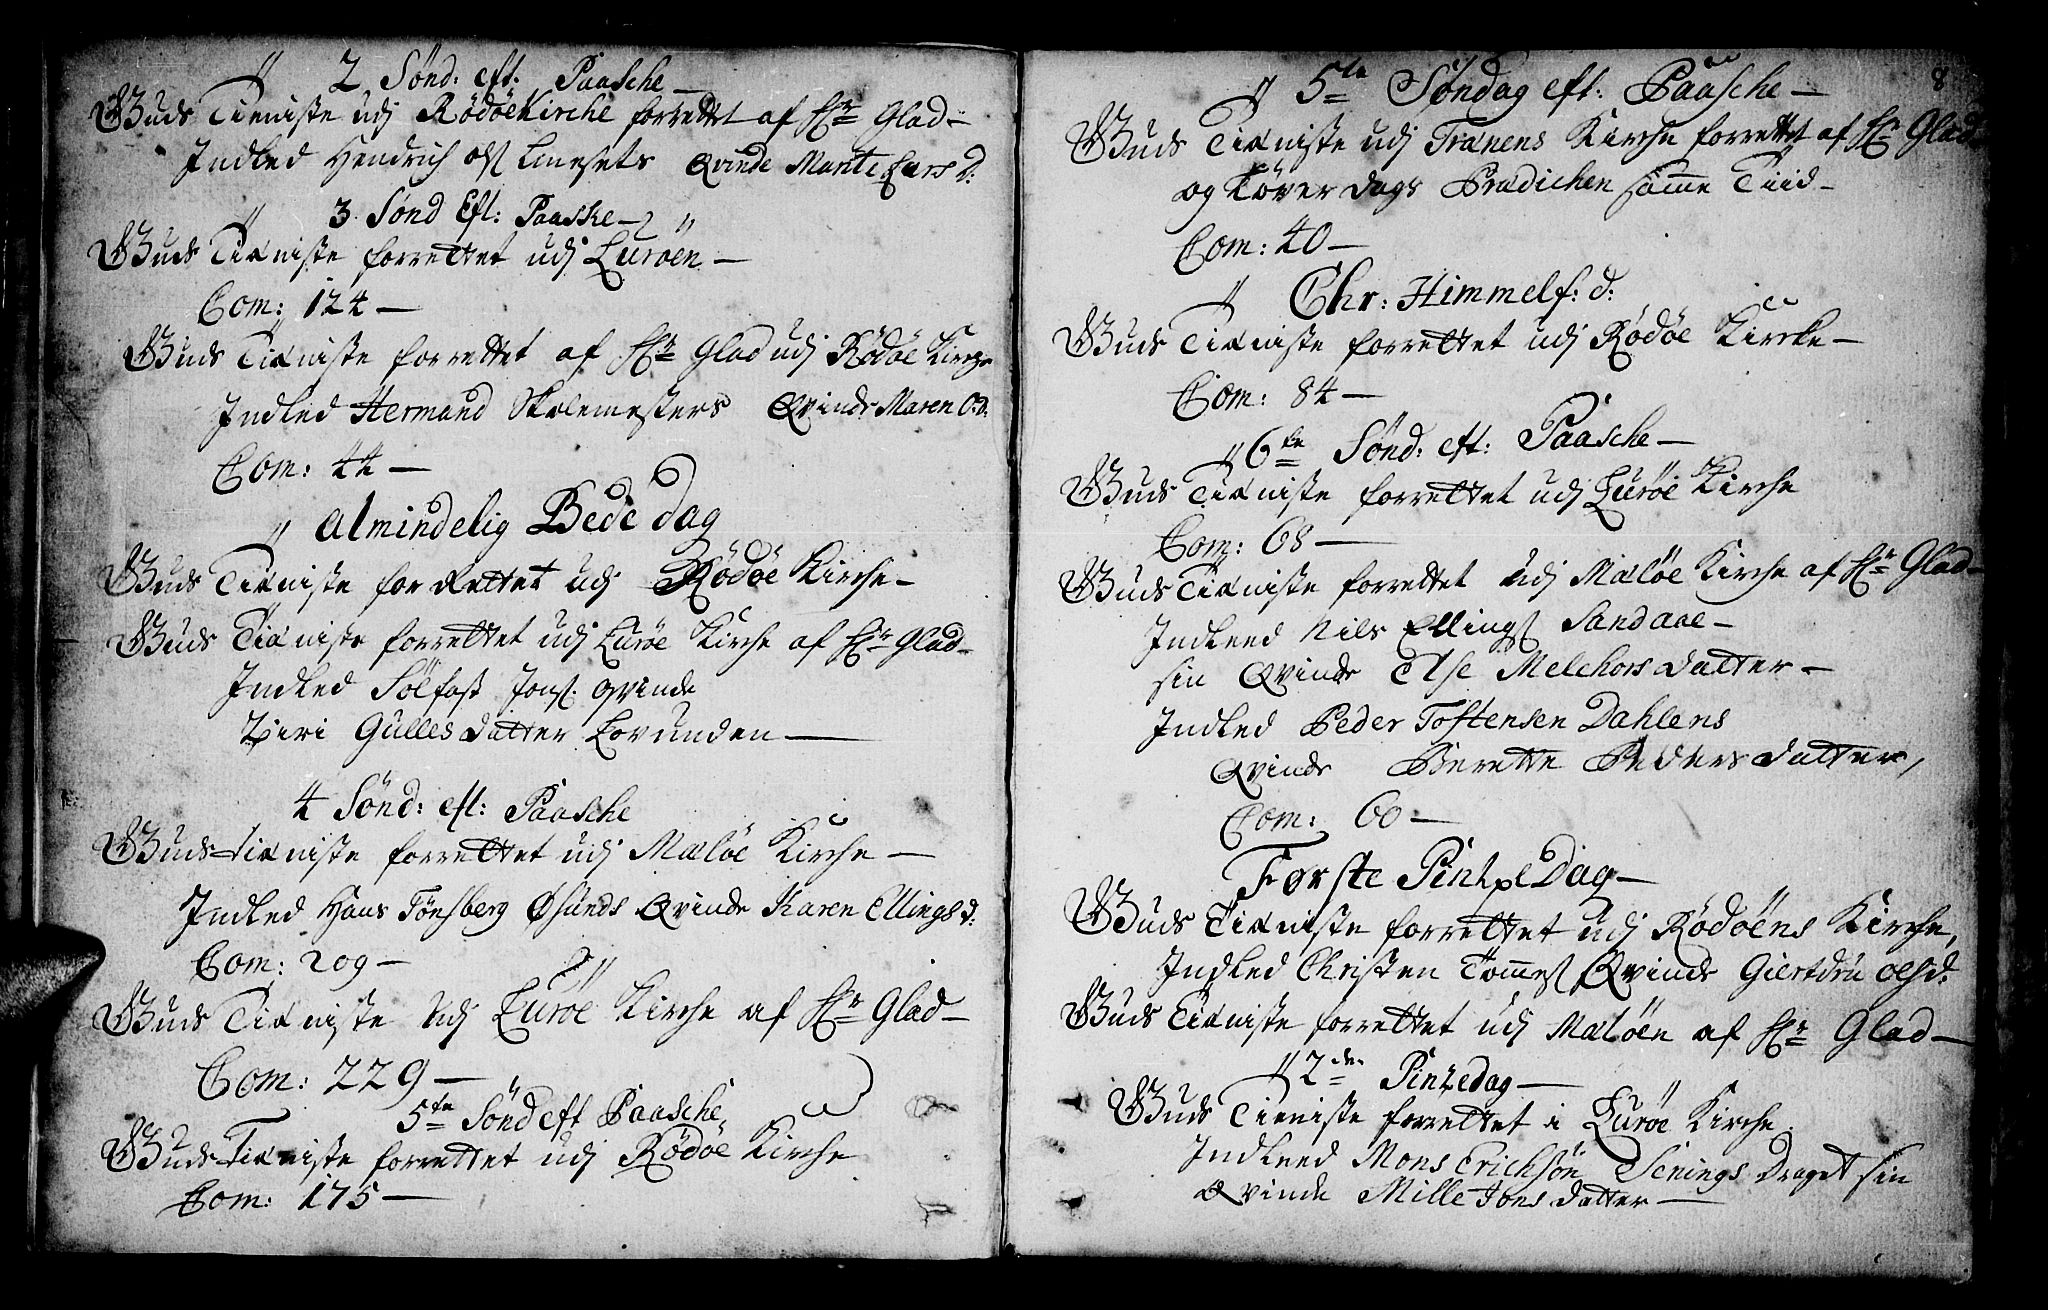 2 Sønd: eft: Paasche —
Guds Tieniste udj Rödöe Kirche forrettet af Hr Glad —
Indled Hendrich Ols: Qvinde Marite Lars D:
3 Sønd Eft: Paaske —
Guds Tieniste forrettet udj Luröen —
Com: 124 —
Guds Tieniste forrettet af Hr Glad udj Rödöe Kirche
Indled Hermand Skolemesters Qvinde Maren O:d:
Com: 44 —
Almindelig Bede dag
Guds Tieniste for Rettet udj Rödöe Kirche —
Guds Tieniste forrettet udj Luröe Kirche af Hr Glad —
Indled Sölfast Jons: qvinde
Ziri Gulles Datter Lovunden —
4 Sönd: eft: Paasche
Guds Tieniste forrettet udj Mælöe Kirche —
Indled Hans Tönsberg Øsunds Qvinde Karen Ellings d:
Com: 209 —
Guds Tieniste udj Luröe Kirche af Hr Glad —
Com: 229 —
5te Sönd eft Paasche
Guds Tieniste forrettet udj Rödöe Kirche
Com: 175 —
8
5te Søndag eft: Paasche —
Guds Tieniste udj Trænens Kirche forrettet af Hr Glad
og Löver dags Prædichen samme Tiid —
Com: 40 —
Chr: Himmelf: d:
Guds Tieniste forrettet udj Rödöe Kircke —
Com: 84 —
6te Sønd: eft: Paasche —
Guds Tieniste forrettet udj Luröe Kirche
Com: 68 —
Guds Tieniste forrettet udj Mælöe Kirche af Hr Glad —
Indleed Nils Ellings: Sandaae —
sin Qvinde Else Melchors Datter —
Indled Peder Toftensen Dahlens
Qvinde Berette Peders Datter,
Com: 60 —
Første Pintze Dag —
Guds Tieniste forrettet udj Rödöens Kirche,
Indled Christen Tommes: Qvinde Giertdru Olsd:
Guds Tieniste forrettet udj Mælöen af Hr Glad —
2den Pintzedag —
Guds Tieniste forrettet i Luröe Kirche.
Indleed Mons Erichsön Senings Draget sin
Qvinde Mille Jons Datter —